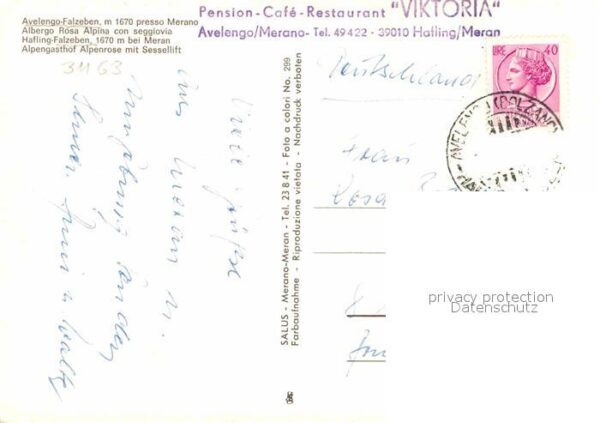 Avelengo-Falzeben, m 1670 presso Merano
Albergo Rosa Alpina con seggiovia
Hafling-Falzeben, 1670 m bei Meran
Alpengasthof Alpenrose mit Sessellift
3463
Viele Grüße
aus Meran u.
Umgebung senden
Pension-Café-Restaurant "VIKTORIA"
Avelengo/Merano- Tel. 49422 - 39010 Hafling/Meran
SALUS - Merano-Meran - Tel. 23 8 41 - Foto a colori No. 299
Farbaufnahme - Riproduzione vietata - Nachdruck verboten
LIRE 40
AVELENGO (BOLZANO)
Deutschland
Frau
Rosa
privacy protection
Datenschutz